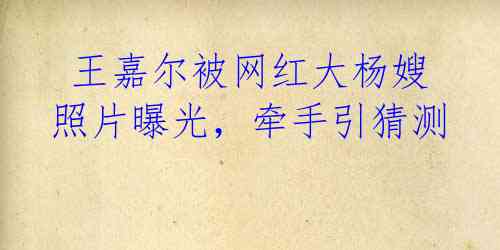 王嘉尔被网红大杨嫂
照片曝光，牵手引猜测